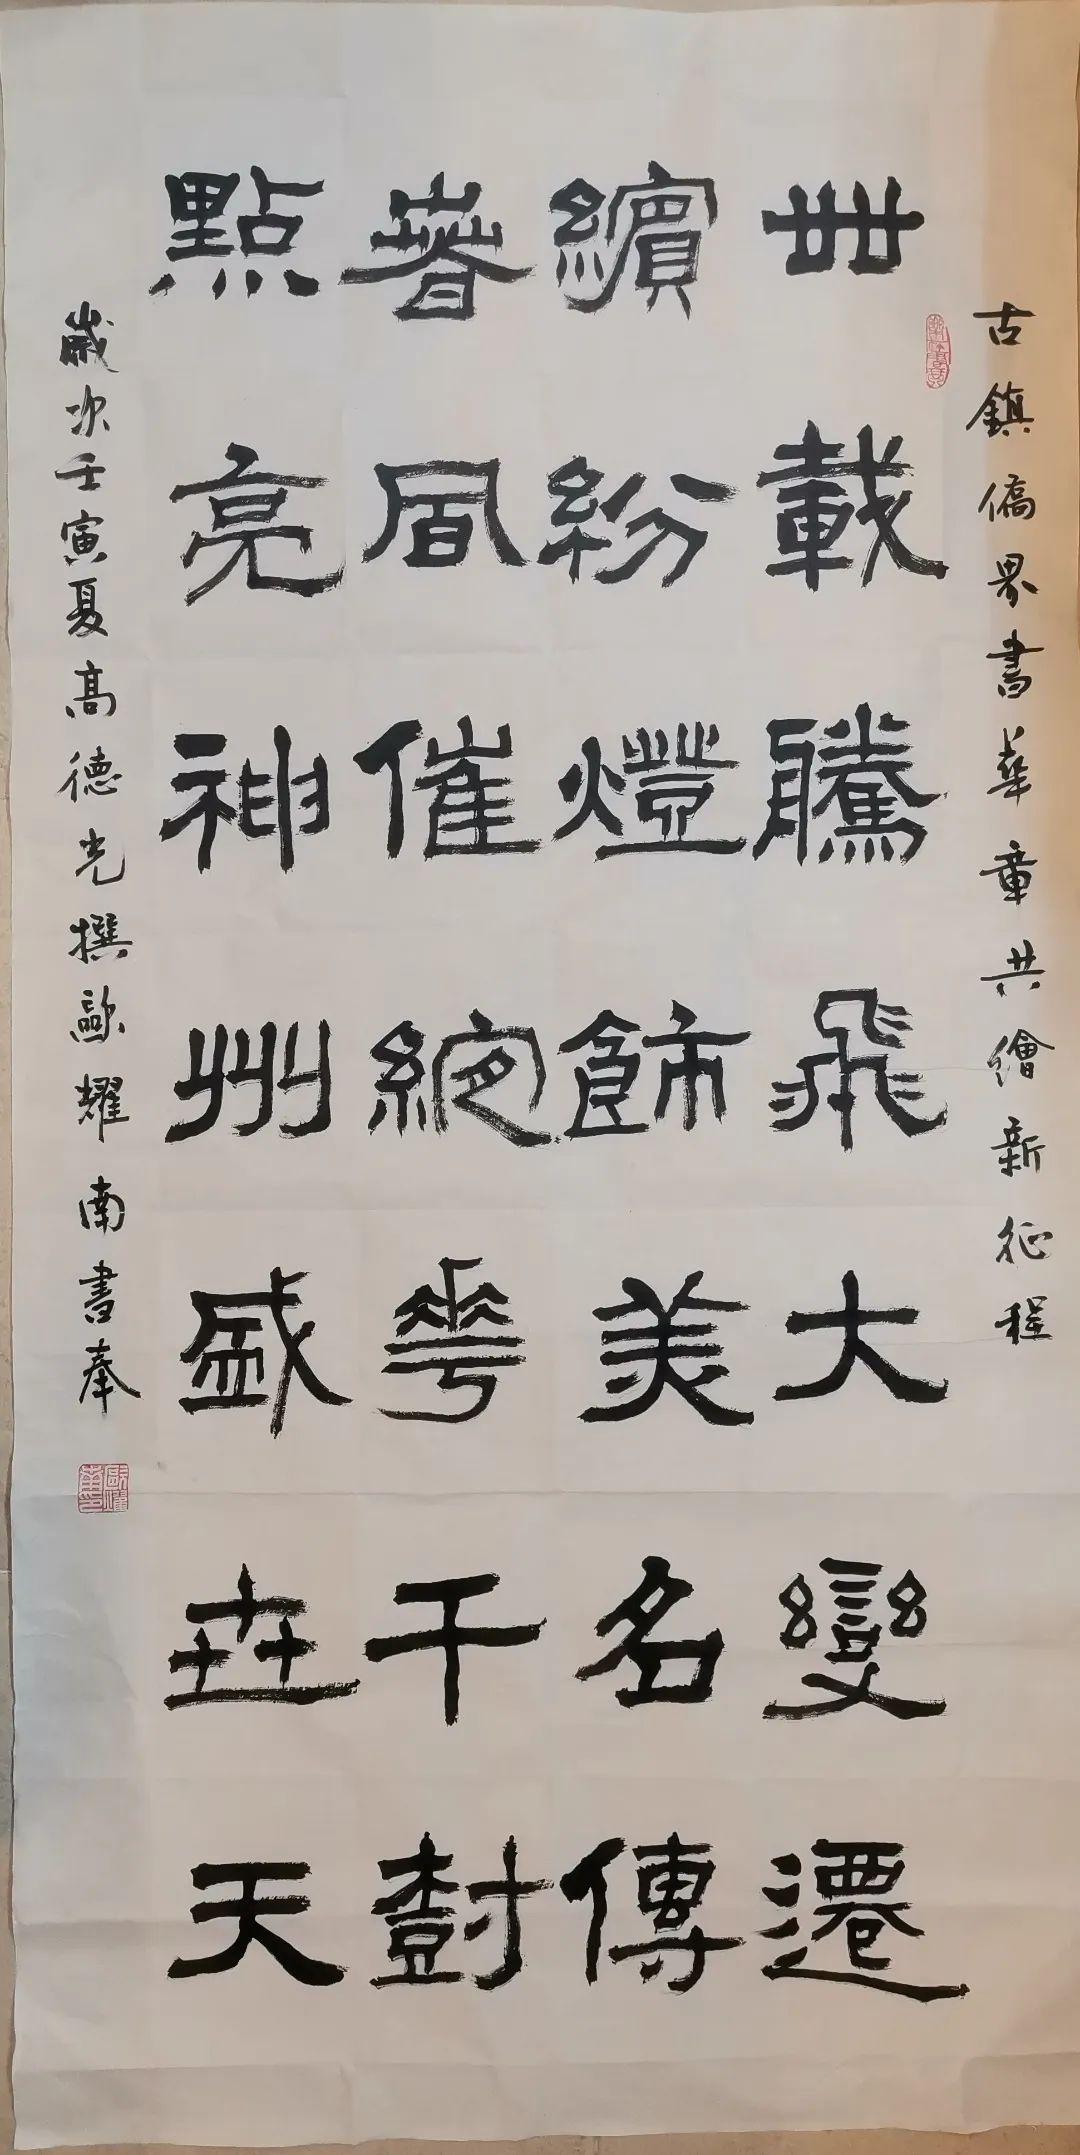 古鎮僑界書華章共繪新征程
卌載騰飛大變遷
繽紛燈飾美名傳
春風催綻華千樹
點亮神州盛世天
歲次壬寅夏高德光撰歐耀南書奉
歐耀南印